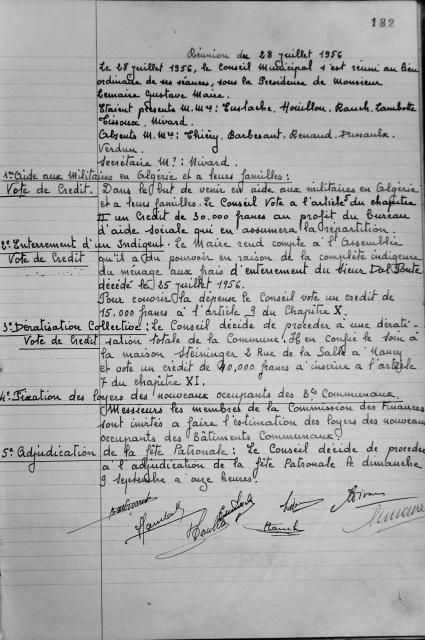 182
Réunion du 28 juillet 1956
Le 28 juillet 1956, le Conseil Municipal s'est réuni au lieu
ordinaire de ses séances, sous la Présidence de Monsieur
Lemaire Gustave Maire.
Etaient présents M.Mrs: Eustache. Houillon. Rauch. Lambotte
Tissoux. Nivard.
Absents M.Mrs: Thiéry. Barbesant. Renaud.
Verdun.
Secrétaire Mr: Nivard.
1º Aide aux Militaires en Algérie et a leurs familles:
Vote de Credit. Dans le but de venir en aide aux militaires en Algérie
et a leurs familles. Le Conseil Vote a l'article 5 du chapitre
II un Crédit de 30.000 francs au profit du Bureau
d'aide sociale qui en assumera la répartition.
2º Enterrement d'un Indigent. Le Maire rend compte a l'Assemblée
Vote de Credit qu'il a du pourvoir en raison de la complète indigence
du ménage aux frais d'enterrement du sieur Dal Ponte
décédé le 25 juillet 1956.
Pour couvrir la dépense le Conseil vote un credit de
15.000 francs à l'Article 9 du Chapitre X.
3º Dératisation Collective: Le Conseil décide de procéder à une dérati-
Vote de Credit sation totale de la Commune. Il en Confie le soin à
la maison Steininger 2 Rue de la Salle a Nancy
et vote un crédit de 40,000 francs à inscrire a l'article
7 du chapitre XI.
4º Fixation des loyers des nouveaux occupants des Bts Communaux.
Messieurs les membres de la Commission des Finances
sont invités a faire l'estimation des loyers des nouveaux
occupants des Bâtiments Communaux.
5º Adjudication de la fête Patronale: Le Conseil décide de procéder
a l'adjudication de la fête Patronale le dimanche
9 septembre a onze heures.
Rauch
Lemaire